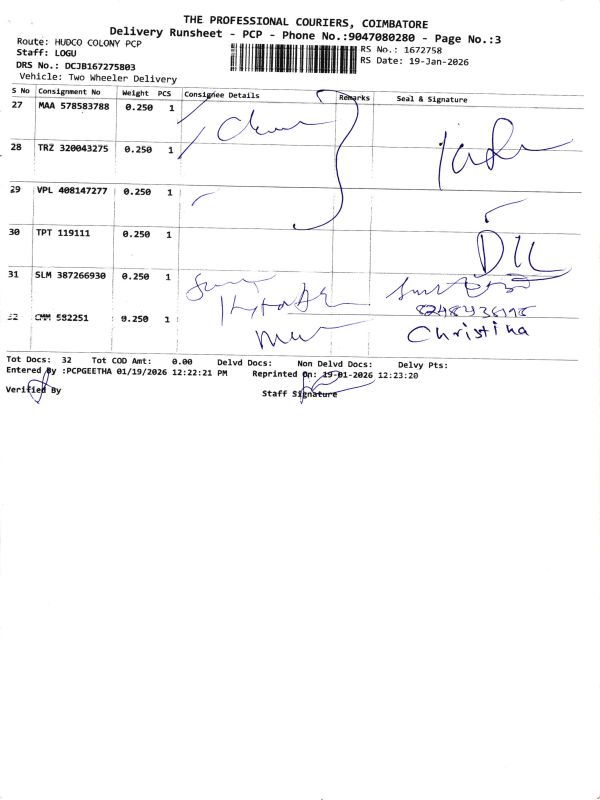 THE PROFESSIONAL COURIERS, COIMBATORE
Delivery Runsheet - PCP - Phone No.:9047080280 - Page No.:3
Route: HUDCO COLONY PCP
RS No.: 1672758
Staff: LOGU
RS Date: 19-Jan-2026
DRS No.: DCJB167275803
Vehicle: Two Wheeler Delivery
S No Consignment No Weight PCS Consignee Details Remarks Seal & Signature
27 MAA 578583788 0.250 1
28 TRZ 320043275 0.250 1
29 VPL 408147277 0.250 1
30 TPT 119111 0.250 1
31 SLM 387266930 0.250 1
32 CMM 582251 0.250 1
Christina
Tot Docs: 32 Tot COD Amt: 0.00 Delvd Docs: Non Delvd Docs: Delvy Pts:
Entered By :PCPGEETHA 01/19/2026 12:22:21 PM Reprinted On: 19-01-2026 12:23:20
Verified By
Staff Signature